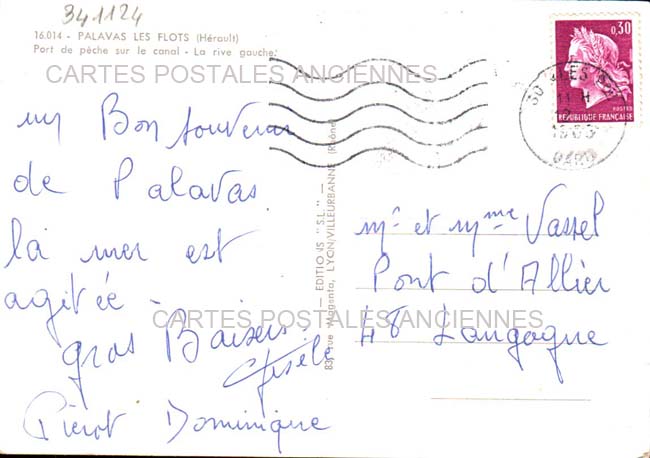 341124
16.014 - PALAVAS LES FLOTS (Hérault)
Port de pêche sur le canal - La rive gauche.
CARTES POSTALES ANCIENNES
un Bon souvenir
de Palavas.
la mer est
agitée -
gros Baisers.
Gisèle
Pierrot Dominique
83, rue Magenta, LYON/VILLEURBANNE (Rhône)
— EDITIONS "S.L." —
0,30
POSTES
REPUBLIQUE FRANÇAISE
11 H
GARD
Mr et Mme Vassel
Pont d'Allier
48 Langogne
CARTES POSTALES ANCIENNES